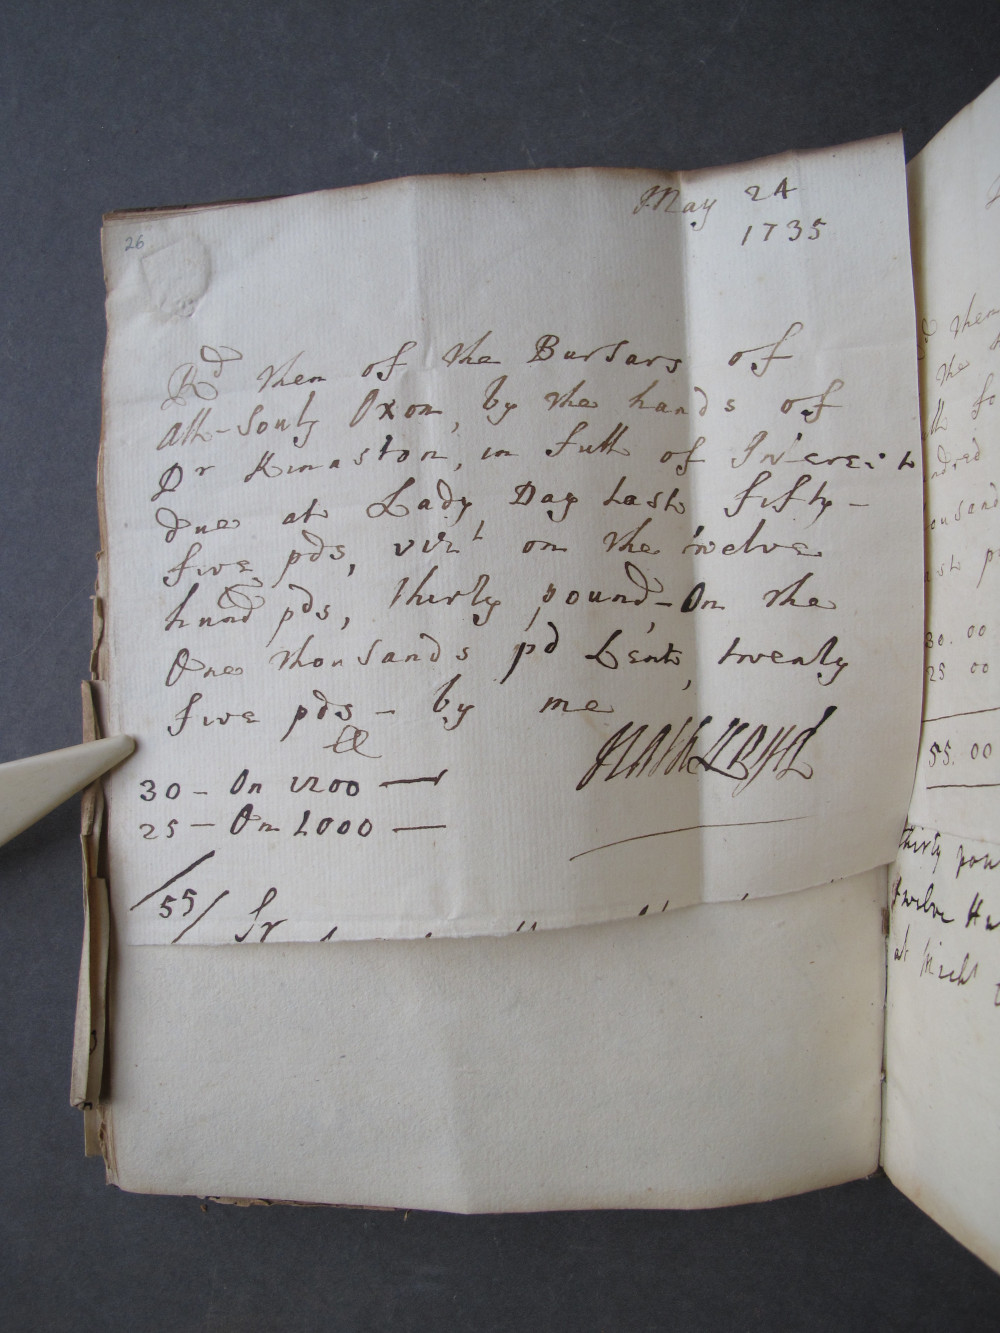 26
May 24
1735
Rd then of the Bursars of
All-Souls Oxon, by the hands of
Dr Kinaston, in full of Interest
due at Lady Day last, fifty-
five pds, vizt on the twelve
hund pds, thirty pound, - On the
One thousands pd Lent, twenty
five pds - by me
Nath Lloyd
30 - On 1200 —
25 - On 1000 —
/55/ Sr
then
the
30. 00
25 00
55. 00
thirty
twelve
at Michs